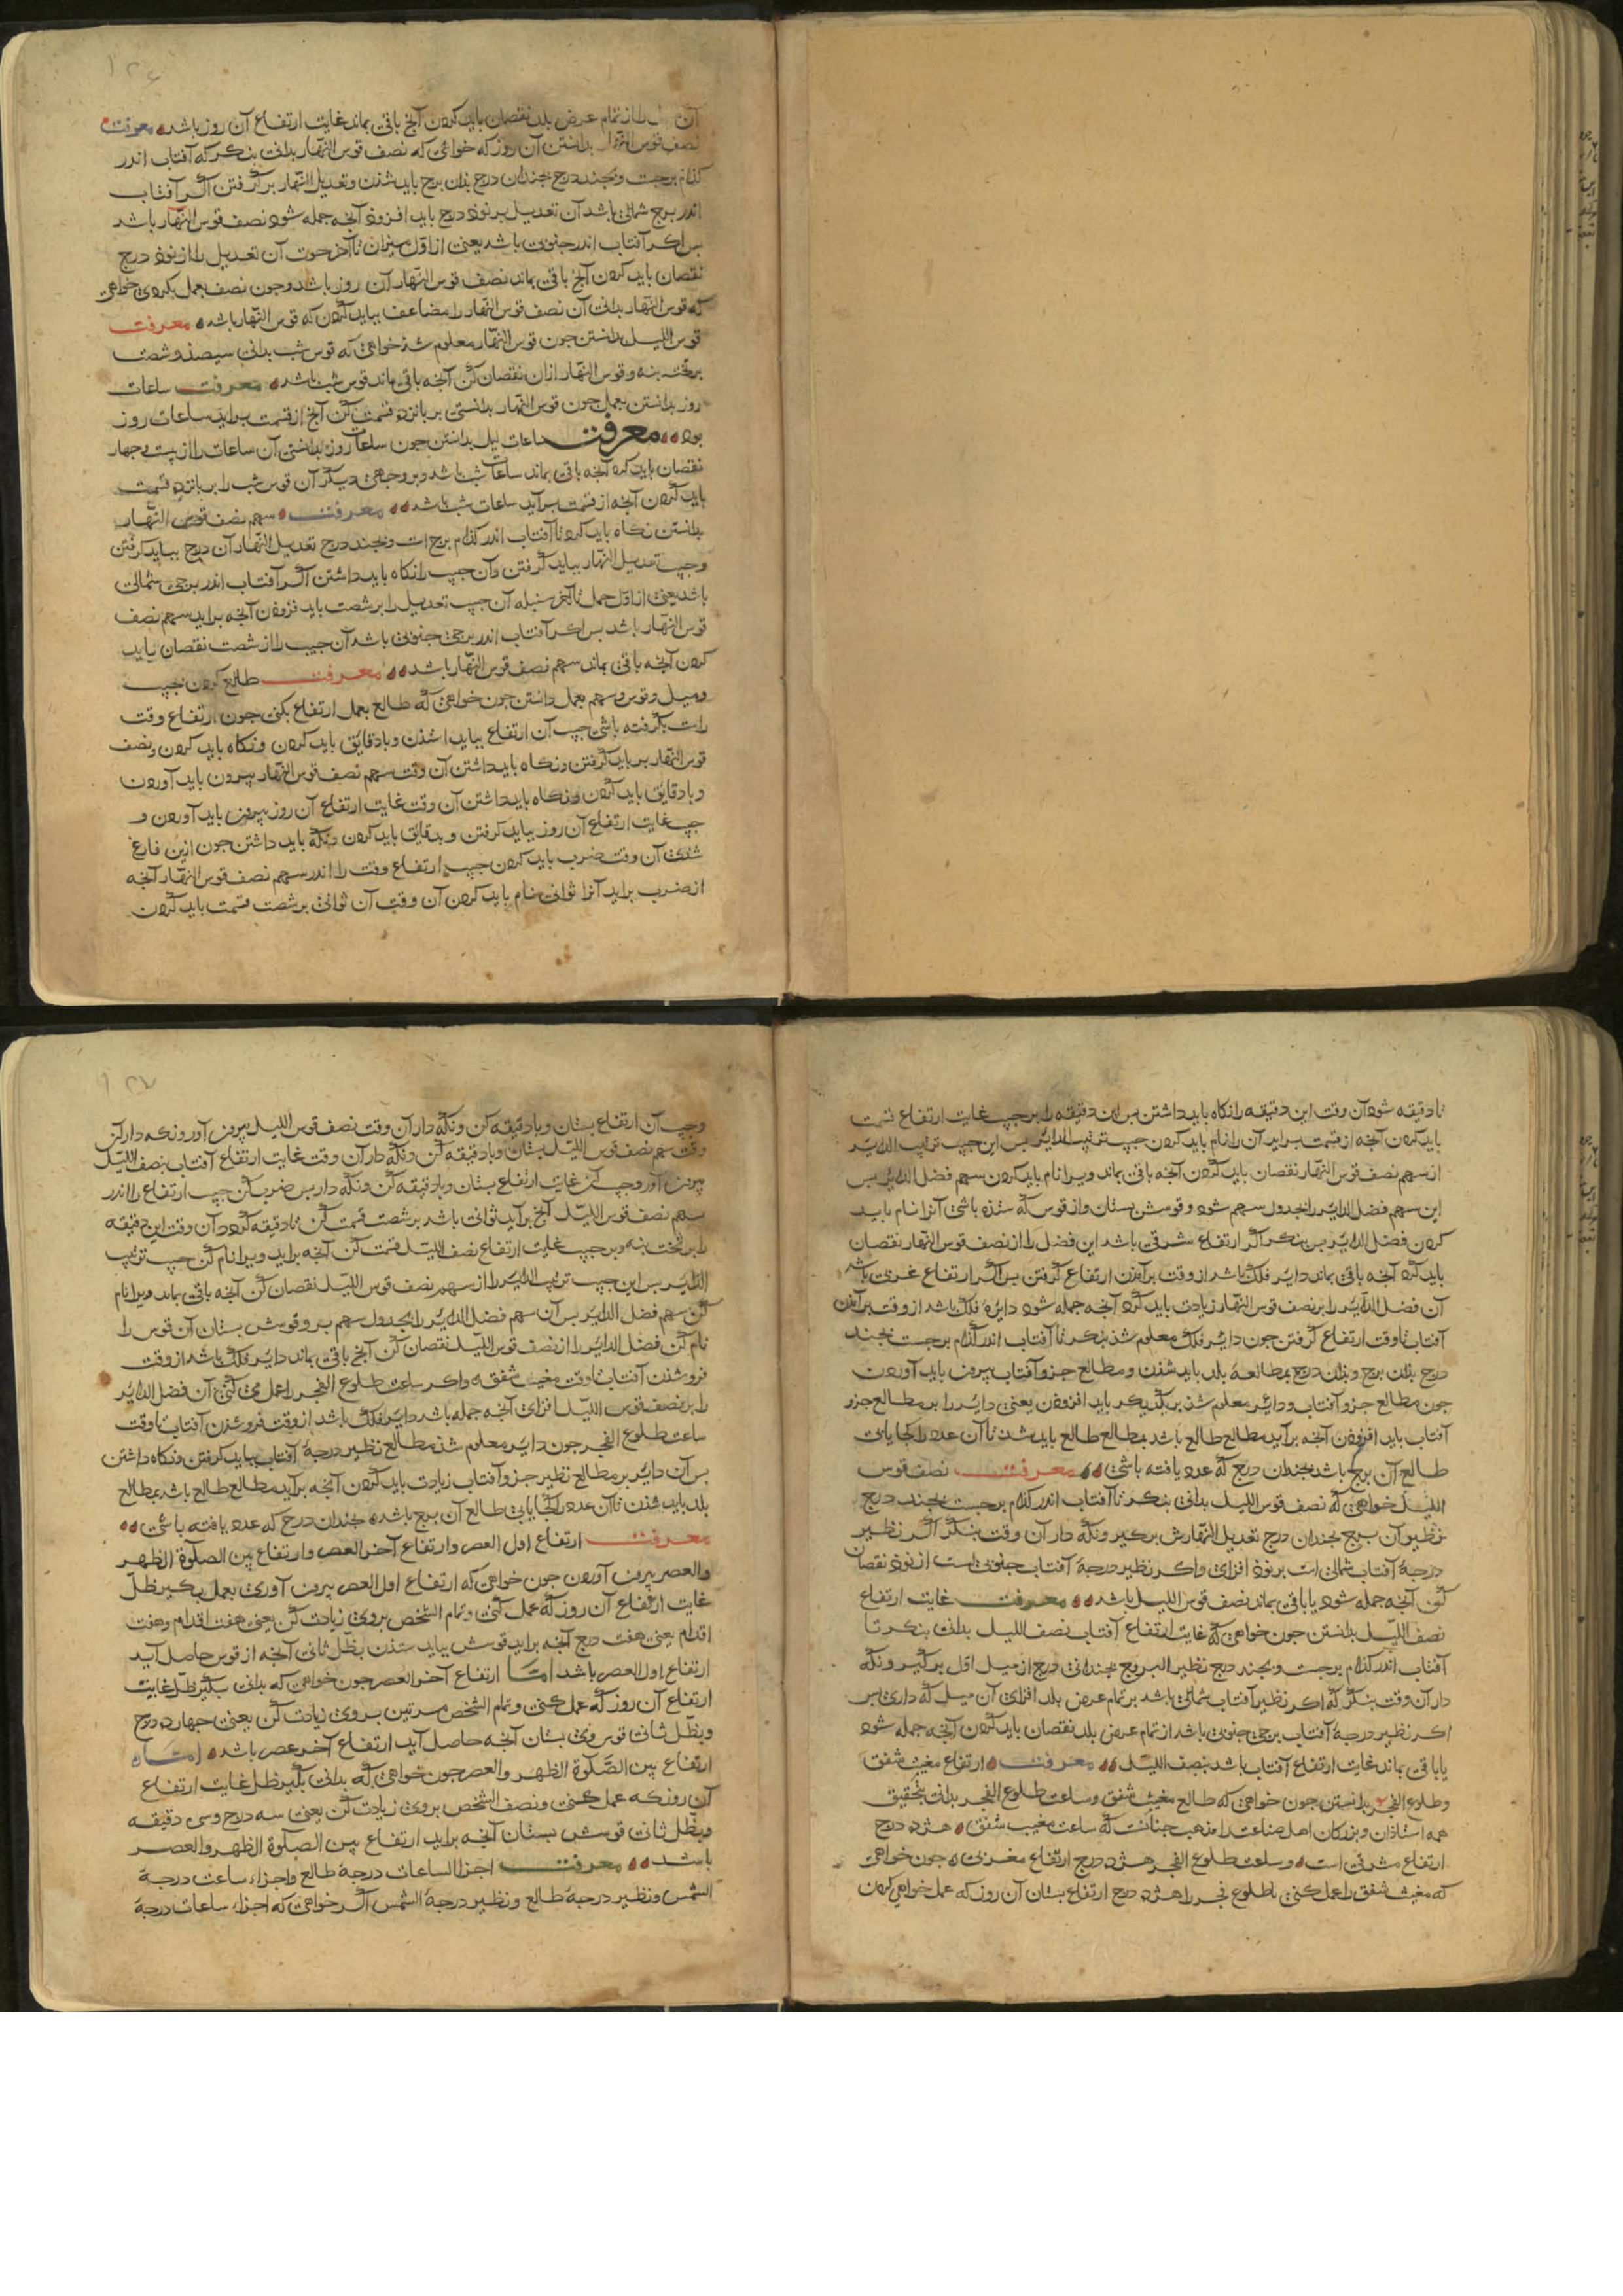 ۱۲۶
آن را از تمام عرض بلد نقصان باید کردن آنچ باقی بماند غایت ارتفاع آن روز باشد معرفت
نصف قوس النهار بدانستن آن روز که خواهی که نصف قوس النهار بدانی بنکر که آفتاب اندر
کذام برجست و بجند درج بجندان درج بذان برج باید شذن و تعدیل النهار برگرفتن اگر آفتاب
اندر برج شمالی باشد آن تعدیل بر نوذ درج باید افزوذ آنجه جمله شود نصف قوس النهار باشد
بس اکر آفتاب اندر جنوبی باشد یعنی از اول میزان تا آخر حوت آن تعدیل را از نوذ درج
نقصان باید کردن آنچ باقی بماند نصف قوس النهار آن روز باشد و جون نصف بعمل بکردی خواهی
که قوس النهار بدانی آن نصف قوس النهار را مضاعف بباید کردن که قوس النهار باشد معرفت
قوس اللیل بدانستن جون قوس النهار معلوم شذ خواهی که قوس شب بدانی سیصذ و شصت
بر تخت بنه و قوس النهار ازان نقصان کن آنجه باقی ماند قوس شب باشد معرفت ساعات
روز بدانستن بعمل جون قوس النهار بدانستی بر بانزده قسمت کن آنچ از قسمت براید ساعات روز
بود معرفت ساعات لیل بدانستن جون ساعات روز بدانستی آن ساعات را از بیست و جهار
نقصان باید کرد آنجه باقی بماند ساعات شب باشد و بر وجهی دیگر آن قوس شب را بر بانزده قسمت
باید کردن آنجه از قسمت براید ساعات شب باشد معرفت سهم نصف قوس النهار
بدانستن نکاه باید کرد تا آفتاب اندر کذام برج است و بجند درج تعدیل النهار آن درج بباید کرفتن
و جیب تعدیل النهار بباید گرفتن و آن جیب را نکاه باید داشتن اگر آفتاب اندر برجی شمالی
باشد یعنی از اول حمل تا آخر سنبله آن جیب تعدیل را بر شصت باید فزودن آنجه براید سهم نصف
قوس النهار باشد بس اکر آفتاب اندر برجی جنوبی باشد آن جیب را از شصت نقصان باید
کردن آنجه باقی بماند سهم نصف قوس النهار باشد معرفت طالع کردن بجیب
و میل و قوس و سهم بعمل دانستن جون خواهی که طالع بعمل ارتفاع بکنی جون ارتفاع وقت
راست بگرفته باشی جیب آن ارتفاع بباید استذن و با دقایق باید کردن و نکاه باید کردن و نصف
قوس النهار بر باید گرفتن و نکاه باید داشتن آن وقت سهم نصف قوس النهار بیرون باید آوردن
و با دقایق باید کردن و نکاه باید داشتن آن وقت غایت ارتفاع آن روز بیرون باید آوردن و
جیب غایت ارتفاع آن روز بباید کرفتن و بدقایق باید کردن و نکه باید داشتن جون ازین فارغ
شذی آن وقت ضرب باید کردن جیب ارتفاع وقت را اندر سهم نصف قوس النهار آنجه
از ضرب براید آنرا ثوانی نام باید کردن آن وقت آن ثوانی بر شصت قسمت باید کردن
تا دقیقه شود آن وقت این دقیقه را نکاه باید داشتن بس این دقیقه را بر جیب غایت ارتفاع قسمت
باید کردن آنجه از قسمت براید آن را نام باید کردن جیب ترتیب الدایر بس این جیب ترتیب الدایر
از سهم نصف قوس النهار نقصان باید کردن آنجه باقی بماند ویرا نام باید کردن سهم فضل الدایر بس
این سهم فضل الدایر را بجدول سهم شود و قوسش بستان و از قوس که ستذه باشی آنرا نام باید
کردن فضل الدایر بس بنکر اگر ارتفاع مشرقی باشد این فضل را از نصف قوس النهار نقصان
باید کرد آنجه باقی بماند دایر فلک باشد از وقت برآمذن ارتفاع گرفتن بس اگر ارتفاع غربی باشد
آن فضل الدایر را بر نصف قوس النهار زیادت باید کرد آنجه جمله شود دایرۀ فلک باشد از وقت برآمذن
آفتاب تا وقت ارتفاع گرفتن جون دایر فلک معلوم شذ بنکر تا آفتاب اندر کذام برجست بجند
درج بذان برج و بذان درج بمطالعۀ بلد باید شذن و مطالع جزو آفتاب بیرون باید آوردن
جون مطالع جزو آفتاب و دایر معلوم شذ بر یکدیکر باید افزودن یعنی دایر را بر مطالع جزو
آفتاب باید افزودن آنجه برآید مطالع طالع باشد بمطالع طالع باید شذ تا آن عدد را کجا یابی
طالع آن برج باشد بجندان درج که عدد یافته باشی معرفت نصف قوس
اللیل خواهی که نصف قوس اللیل بدانی بنکر تا آفتاب اندر کذام برجست بجند درج
بنظیر آن برج بجندان درج تعدیل النهارش برگیر و نکه دار آن وقت بنکر اگر نظیر
درجۀ آفتاب شمالی است بر نوذ افزای و اکر نظیر درجۀ آفتاب جنوبی است از نوذ نقصان
کن آنجه جمله شود یا باقی بماند نصف قوس اللیل باشد معرفت غایت ارتفاع
نصف اللیل بدانستن جون خواهی که غایت ارتفاع آفتاب نصف اللیل بدانی بنکر تا
آفتاب اندر کذام برجست و بجند درج نظیر البروج بجندانی درج از میل اول برگیر و نکه
دار آن وقت بنکر که اکر نظیر آفتاب شمالی باشد بر تمام عرض بلد افزای آن میل که داری بس
اکر نظیر درجۀ آفتاب برجی جنوبی باشد از تمام عرض بلد نقصان باید کردن آنجه جمله شود
یا باقی بماند غایت ارتفاع آفتاب باشد بنصف اللیل معرفت ارتفاع مغیب شفق
و طلوع الفجر بدانستن جون خواهی که طالع مغیب شفق و ساعت طلوع الفجر بدانی بتحقیق
همه استاذان و بزرکان اهل صناعت را مذهب جنانست که ساعت مغیب شفق هژده درج
ارتفاع مشرقی است و ساعت طلوع الفجر هژده درج ارتفاع مغربی جون خواهی
که مغیب شفق را عمل کنی یا طلوع فجر را هژده درج ارتفاع بستان آن روز که عمل خواهی کردن
۱۲۷
و جیب آن ارتفاع بستان و با دقیقه کن و نکه دار آن وقت نصف قوس اللیل بیرون آور و نکه دار آن
وقت سهم نصف قوس اللیل بستان و با دقیقه کن و نکه دار آن وقت غایت ارتفاع آفتاب بنصف اللیل
بیرون آور و جیب آن غایت ارتفاع بستان و با دقیقه کن و نکه دار بس ضرب کن جیب ارتفاع را اندر
سهم نصف قوس اللیل آنچ براید ثوانی باشد بر شصت قسمت کن تا دقیقه گردد آن وقت این دقیقه
را بر تخت بنه و بر جیب غایت ارتفاع نصف اللیل قسمت کن آنجه براید ویرا نام کن جیب ترتیب
الدایر بس این جیب ترتیب الدایر را از سهم نصف قوس اللیل نقصان کن آنجه باقی بماند ویرا نام
کن سهم فضل الدایر بس آن سهم فضل الدایر را بجدول سهم بر و قوسش بستان آن قوس را
نام کن فضل الدایر را از نصف قوس اللیل نقصان کن آنچ باقی بماند دایر فلک باشد از وقت
فرو شذن آفتاب تا وقت مغیب شفق و اکر ساعت طلوع الفجر را عمل می کنی آن فضل الدایر
را بر نصف قوس اللیل افزای آنجه جمله باشد دایر فلک باشد از وقت فرو شذن آفتاب تا وقت
ساعت طلوع الفجر جون دایر معلوم شذ مطالع نظیر درجۀ آفتاب بباید کرفتن و نکاه داشتن
بس آن دایر بر مطالع نظیر جزو آفتاب زیادت باید کردن آنجه براید مطالع طالع باشد بمطالع
بلد باید شذن تا آن عدد را کجا یابی طالع آن برج باشد جندان درج که عدد یافته باشی
معرفت ارتفاع اول العصر و ارتفاع آخر العصر و ارتفاع بین الصلوة الظهر
والعصر بیرون آوردن جون خواهی که ارتفاع اول العصر بیرون آوری بعمل بگیر ظل
غایت ارتفاع آن روز که عمل کنی و تمام الشخص بروی زیادت کن یعنی هفت اقدام و هفت
اقدام یعنی هفت درج آنجه براید قوسش بباید ستذن بظل ثانی آنجه از قوس حاصل آید
ارتفاع اول العصر باشد اما ارتفاع آخر العصر جون خواهی که بدانی بگیر ظل غایت
ارتفاع آن روز که عمل کنی و تمام الشخص مرتین بروی زیادت کن یعنی جهارده درج
و بظل ثانی قوس وی بستان آنجه حاصل آید ارتفاع آخر عصر باشد اما
ارتفاع بین الصلوة الظهر والعصر جون خواهی که بدانی بگیر ظل غایت ارتفاع
آن روز که عمل کنی و نصف الشخص بروی زیادت کن یعنی سه درج و سی دقیقه
و بظل ثانی قوسش بستان آنجه براید ارتفاع بین الصلوة الظهر والعصر
باشد معرفت اجزا الساعات درجۀ طالع و اجزاء ساعت درجۀ
الشمس و نظیر درجۀ طالع و نظیر درجۀ الشمس اگر خواهی که اجزاء ساعات درجۀ